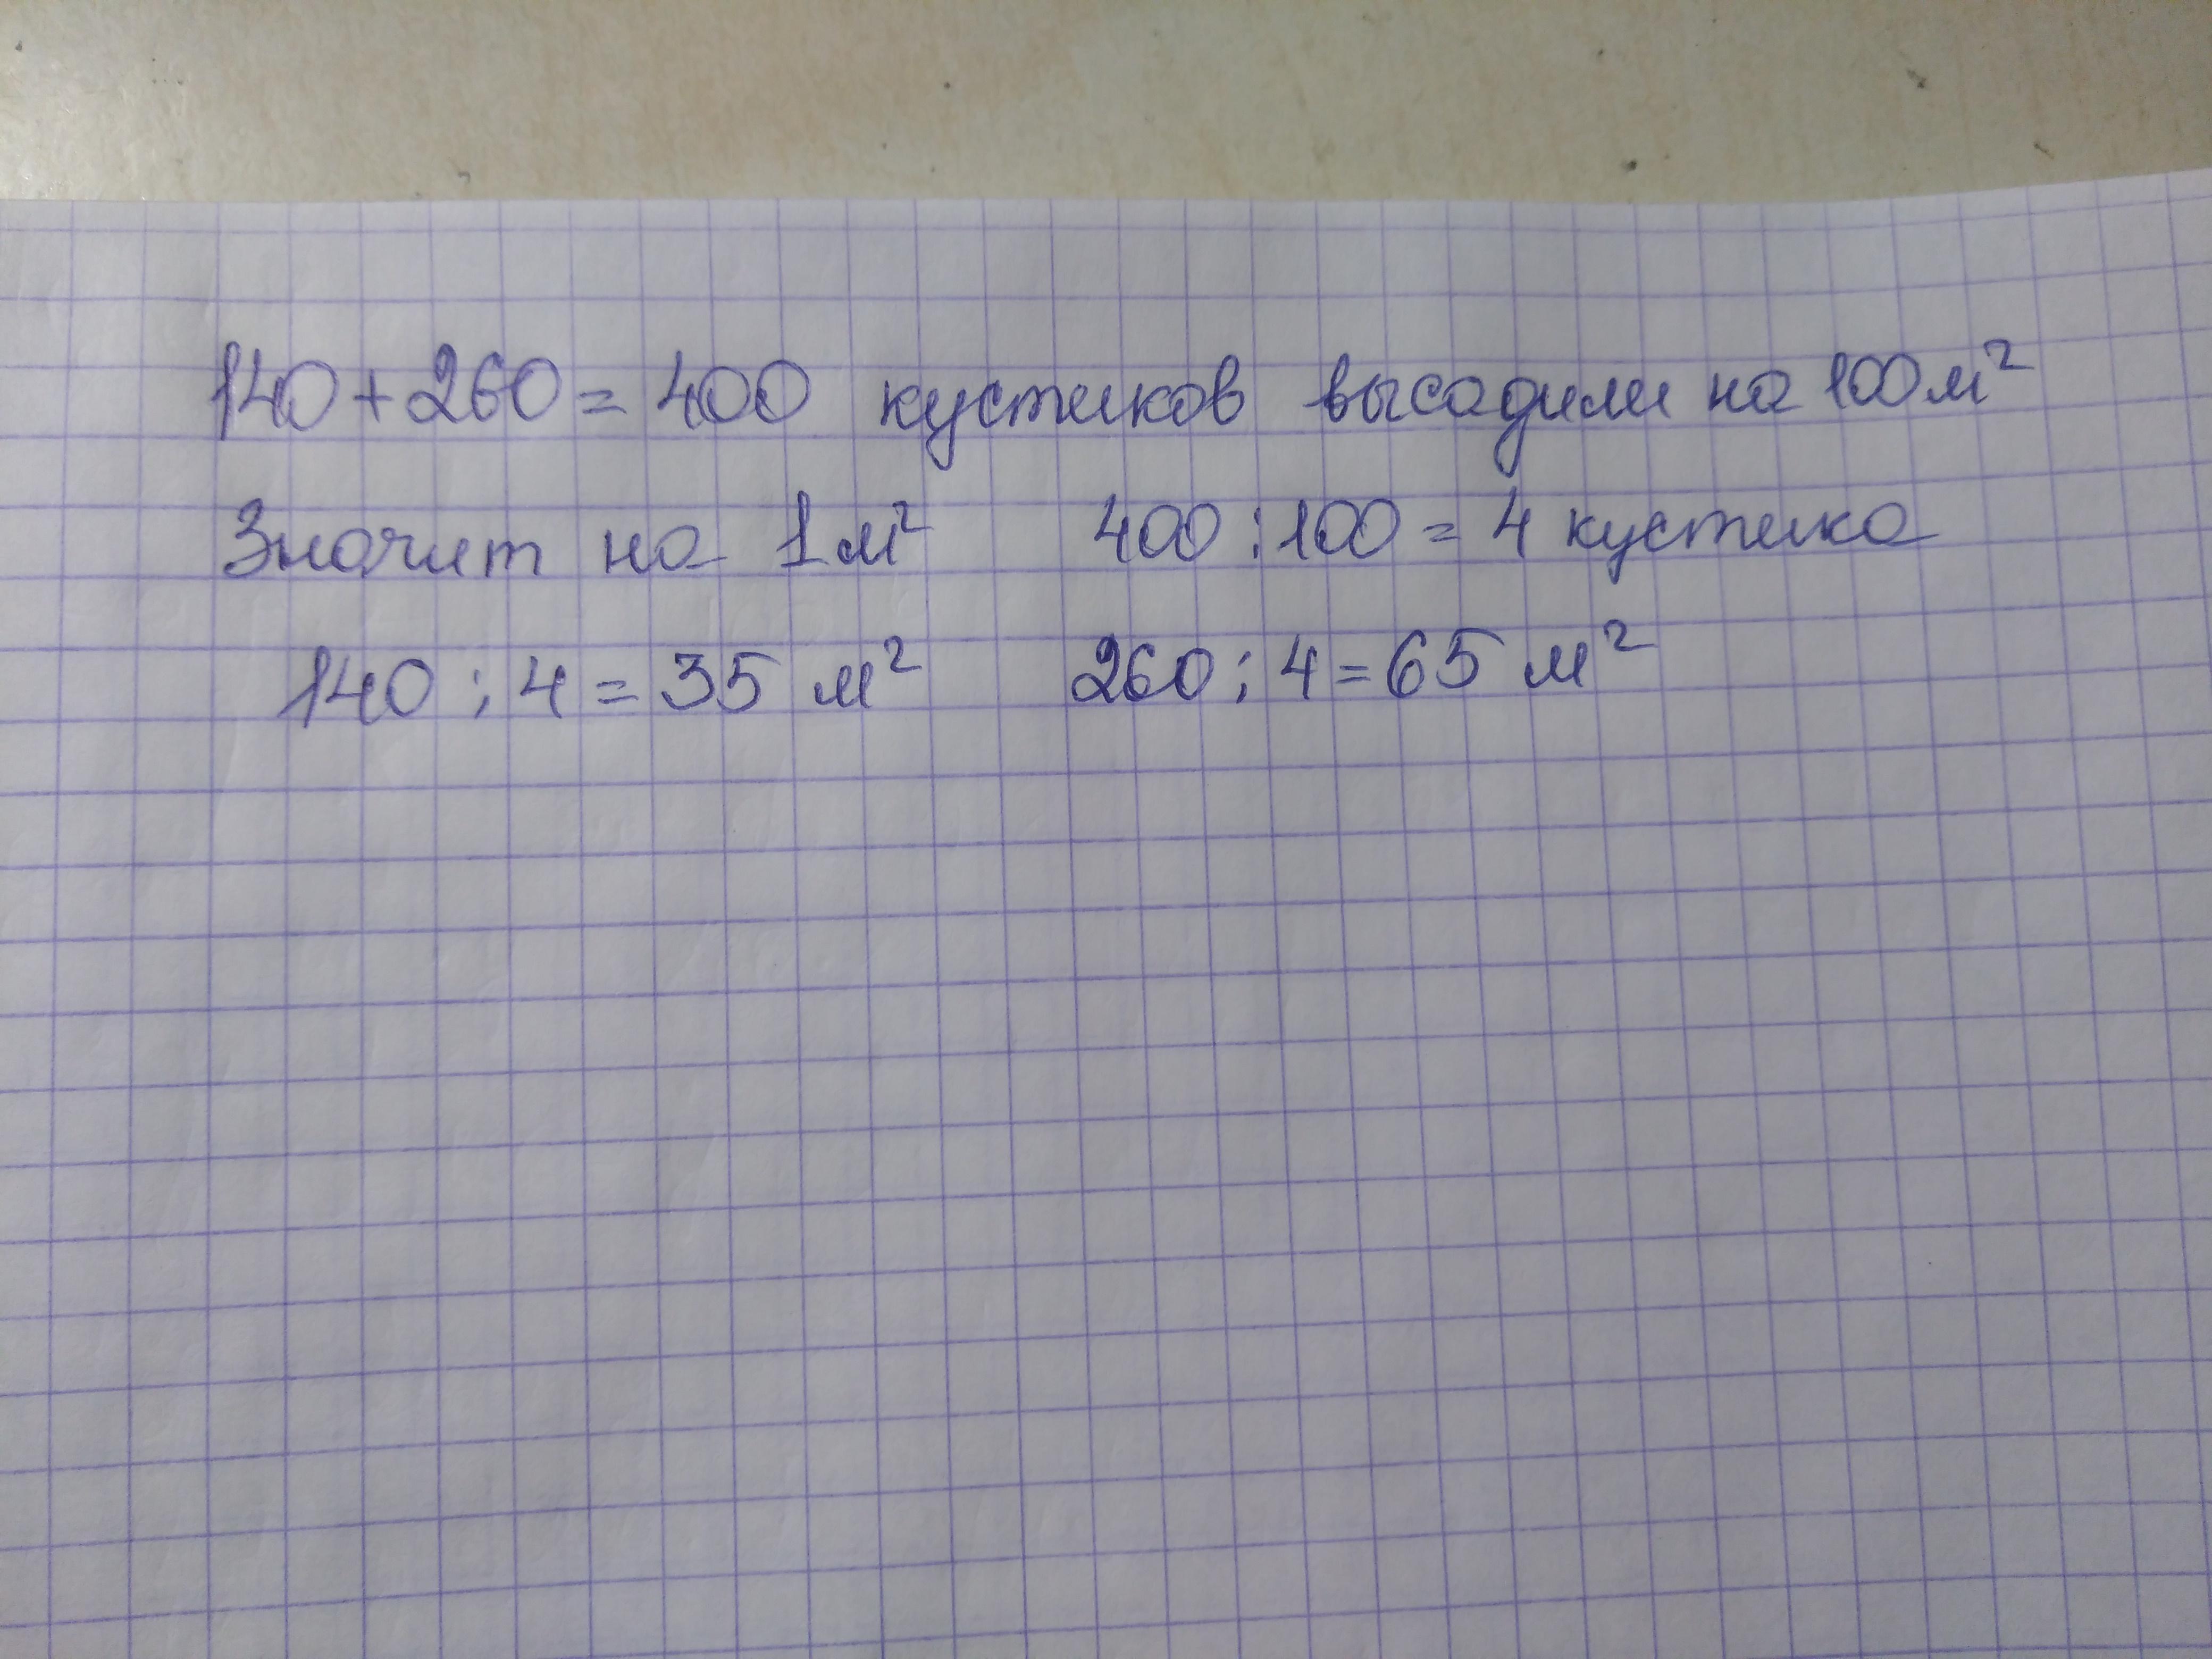 140+260=400 кустиков высадили на 100м²
Значит на 1м² 400:100=4 кустика
140:4=35 м² 260:4=65 м²